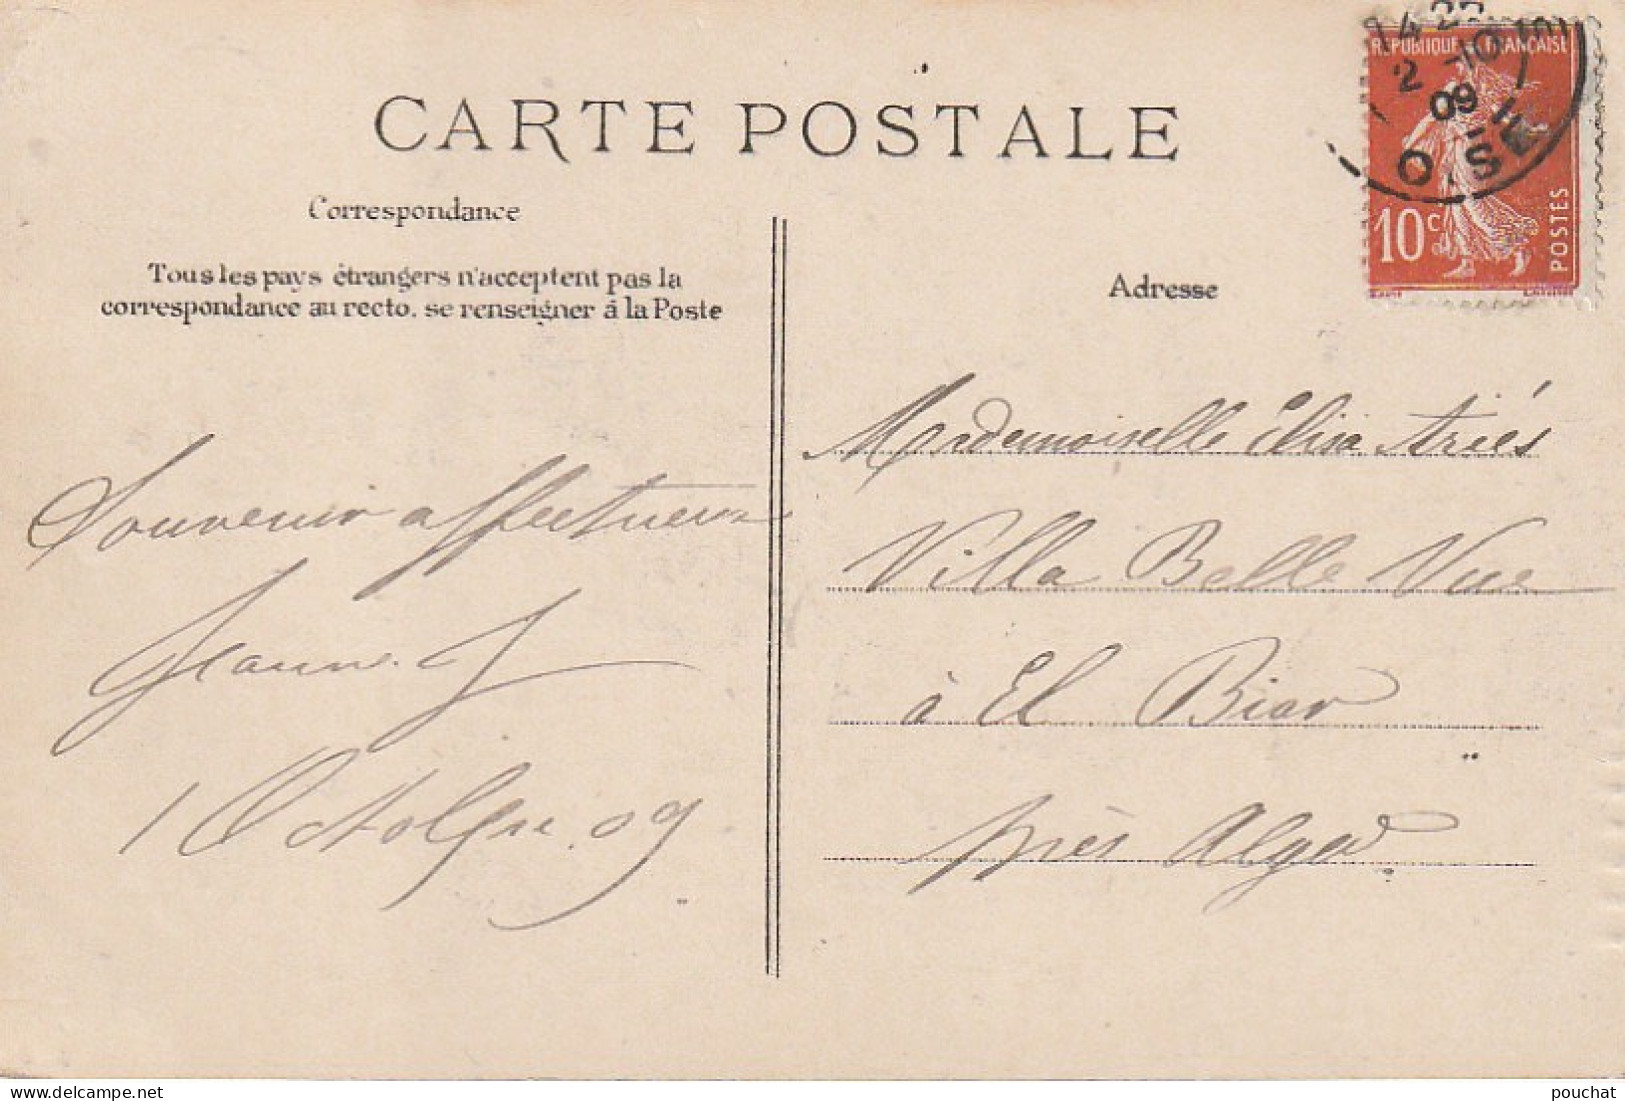 CARTE POSTALE
Correspondance
Tous les pays étrangers n'acceptent pas la
correspondance au recto. se renseigner à la Poste
Souvenir affectueux
Jeanne. J
1 Octobre. 09
Adresse
Mademoiselle Élisa Ariés
Villa Belle Vue
à El Biar
près Alger
REPUBLIQUE FRANÇAISE
10c
POSTES
2 -10
09
OISE
pouchat